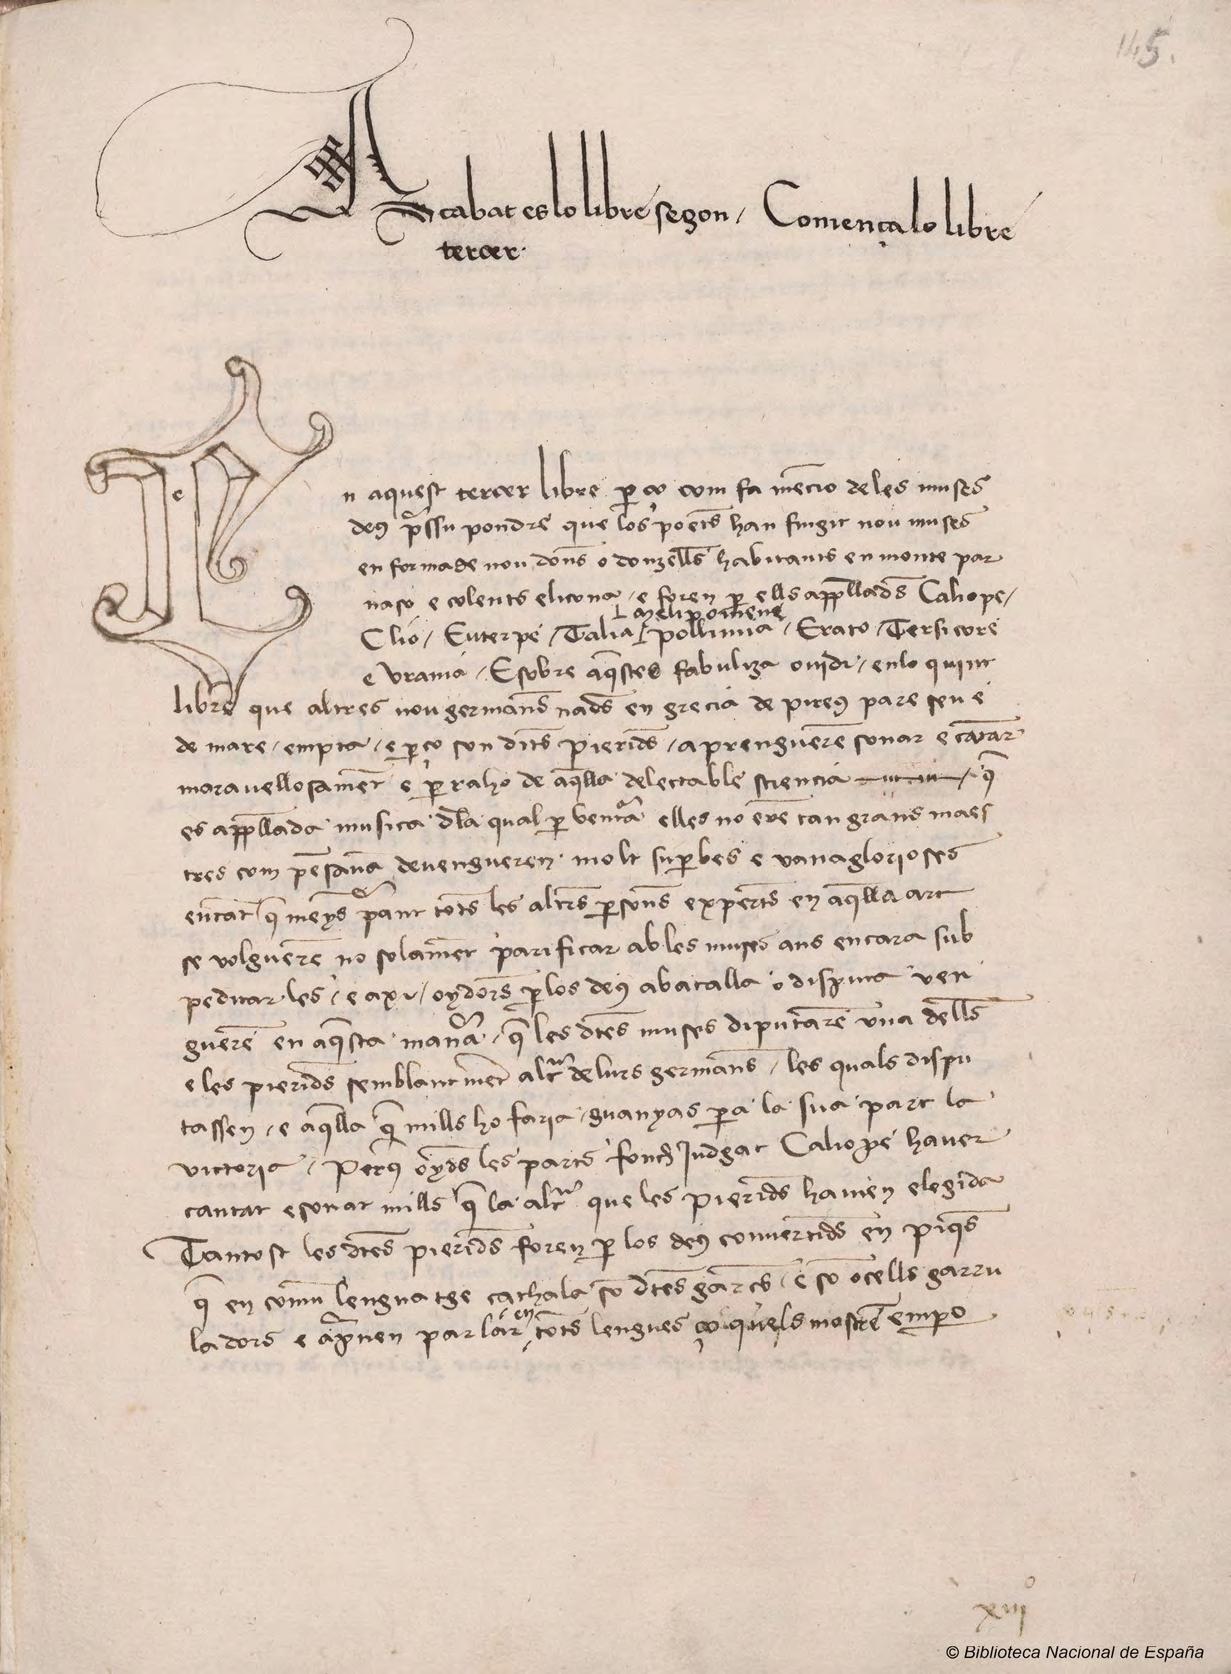 145.
Acabat es lo libre segon / Comença lo libre
tercer.
n aquest tercer libre per ço com fa mẽcio de les muses
deus pressupondre que los poets han fingit nou muses
en forma de nou dons o donzells habitants en monte par
naso e colents elicona / e foren per ells appellads Caliope /
Melipomene
Clio / Euterpe / Talia / pollimia / Erato / Tersicore
e Vrania / E sobre aqstes fabuliza ouidi / en lo quint
libre que altres nou germans nads en grecia de pireus pare seu e
de mare / empta / e per ço son dits pierids / aprengueren sonar e cãtar
marauellosamẽt e per raho de aqlla delectable sciencia / q̃
es appellada musica dla qual per ventura elles no erẽ tan grans maes
tres com pẽsauã deuengueren molt superbes e vanaglorioses
en tant q̃ meyspreant tots les altres persones experts en aqlla art
se volguerẽ no solamẽt parificar ab les muses ans encara sub
peditar les / e axi / oydors per los deus a batalla o disputa ven
guerẽ en aqsta manera / q̃ les dtes muses diputarẽ vna dells
e les pierids semblantmẽt altra de lurs germans / les quals dispu
tassen / e aqlla qui mills ho faria / guanyas pera la sua part la
victoria / Perus oyds les parts fonch Judgat Caliope hauer
cantat e sonat mills q̃ la altra que les pierids hauien elegida
Tantost les dtes pierids foren per los deus conuertids en piqs
q̃ en comũ lenguatge cathala sõ dtes garces / e sõ ocells garru
en
ladors e aprenen parlar tots lengues ço quels mostrẽ empo
xiiiº
© Biblioteca Nacional de España